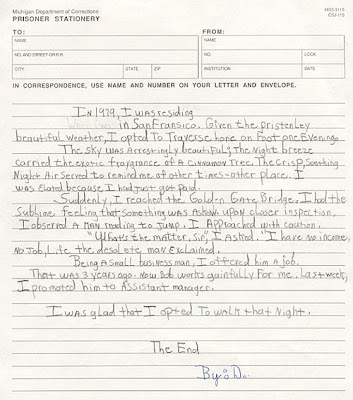 Michigan Department of Corrections
PRISONER STATIONERY
4835-3110
CSJ-110
TO:
FROM:
NAME
NAME
NO. AND STREET OR R.R.
NO.
LOCK
CITY
STATE
ZIP
INSTITUTION
DATE
IN CORRESPONDENCE, USE NAME AND NUMBER ON YOUR LETTER AND ENVELOPE.
In 1979, I was residing
in SanFransico. Given the pristenley
beautiful weather, I opted To Traverse home on Foot one Evening.
The SKY was Arrestingly beautiful; The Night breeze
carried the exotic fragrance of A Cinnamon Tree. The Crisp, Soothing
Night Air Served to remind me of other times - other place. I
was Elated because I had just got Paid.
Suddenly, I reached the Golden Gate Bridge. I had the
Sublime Feeling that something was Askew upon closer inspection,
I observed A Man reading to Jump. I Approached with caution.
"Whats the matter, Sir", I Asked. "I have no income,
No Job, Life, the desolate man Exclaimed.
Being A small business man, I offered him A job.
That was 3 years ago. Now Bob works gainfully For me. Last week,
I promoted him to Assistant manager.
I was glad that I opted To walk that Night.
The End
By: D.